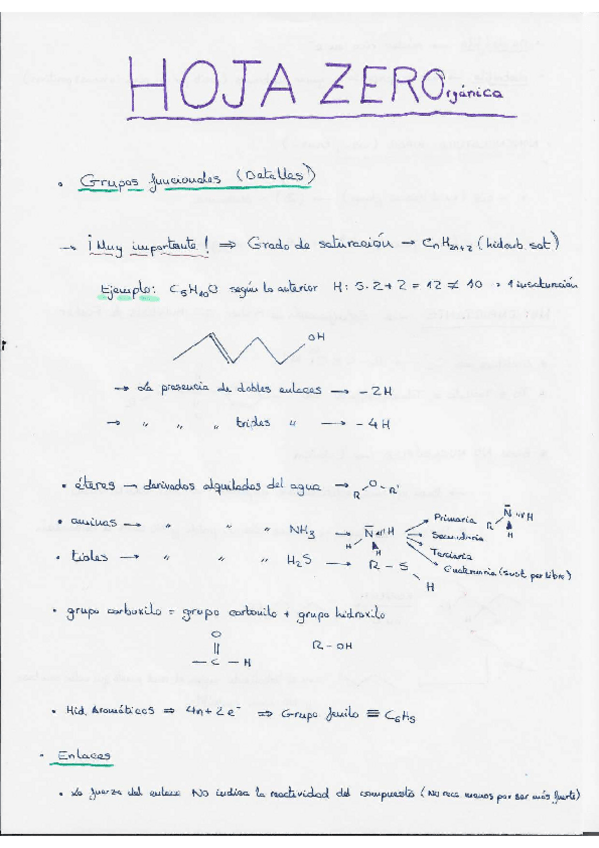 HOJA ZERO Orgánica
• Grupos funcionales (Detalles)
→ ¡Muy importante! ⇒ Grado de saturación → CnH2n+2 (hidcarb. sat)
Ejemplo: C5H10O según lo anterior H: 5·2+2 = 12 ≠ 10 → 1 insaturación
OH
→ La presencia de dobles enlaces → -2H
→ " " " triples " → -4H
• éteres → derivados alquilados del agua → R O R'
• aminas → " " " NH3 → N H H H Primaria R N H H
Secundaria
Terciaria
Cuaternaria (sust. par libre)
• tioles → " " " H2S → R - S H
• grupo carboxilo = grupo carbonilo + grupo hidroxilo
O
|| R - OH
— C — H
• Hid. Aromáticos ⇒ 4n+2 e⁻ ⇒ Grupo fenilo ≡ C6H5
• Enlaces
• La fuerza del enlace NO indica la reactividad del compuesto (No reac menos por ser más fuerte)